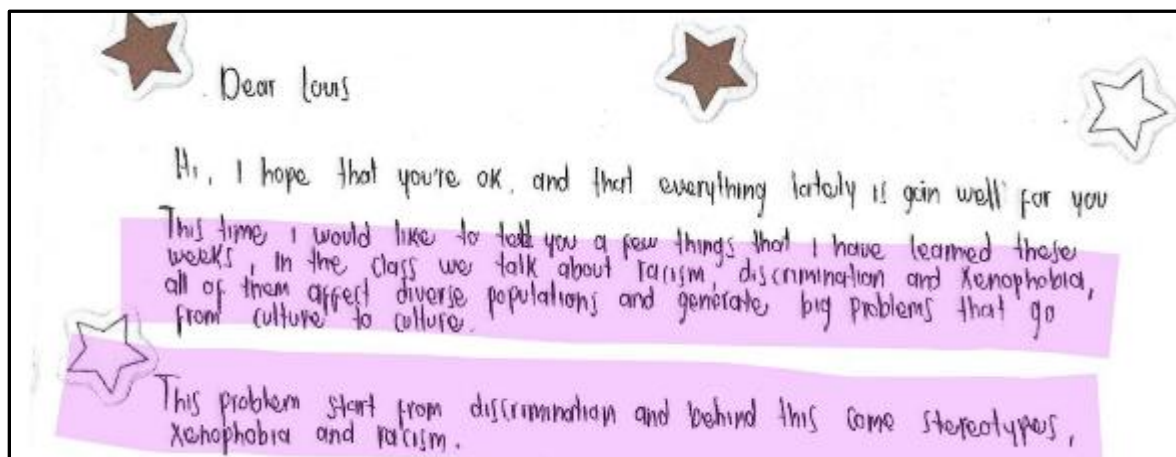 Dear Louis
Hi, I hope that you're OK, and that everything lately is goin well for you
This time, I would like to tell you a few things that I have learned these
weeks, In the class we talk about racism, discrimination and Xenophobia,
all of them affect diverse populations and generate big problems that go
from culture to culture.
This problem start from discrimination and behind this come stereotypes,
Xenophobia and racism.